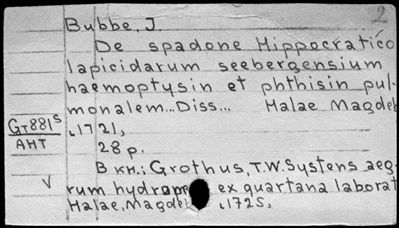 2
Bubbe, J.
De spadone Hippocratico
lapicidarum seebergensium
haemoptysin et phthisin pul-
monalem... Diss... Halae Magdeb
GT881s ,1721,
AHT 28 p.
В кн.: Grothus, T.W. Systens aeg-
V rum hydrope ex quartana laborat
Halae, Magdeb ,1725,